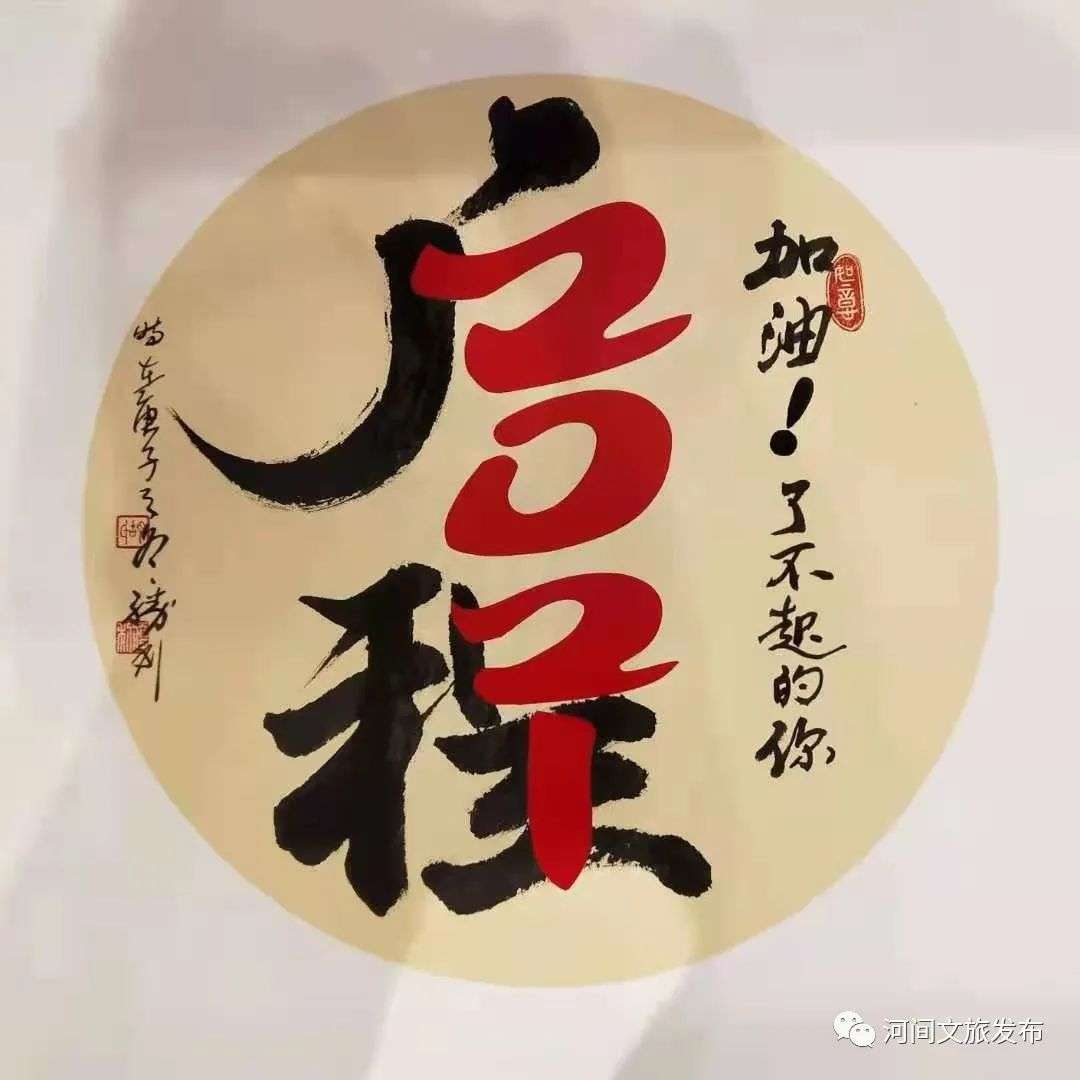 加油！了不起的你
启程
时在庚子之冬胜利
河间文旅发布